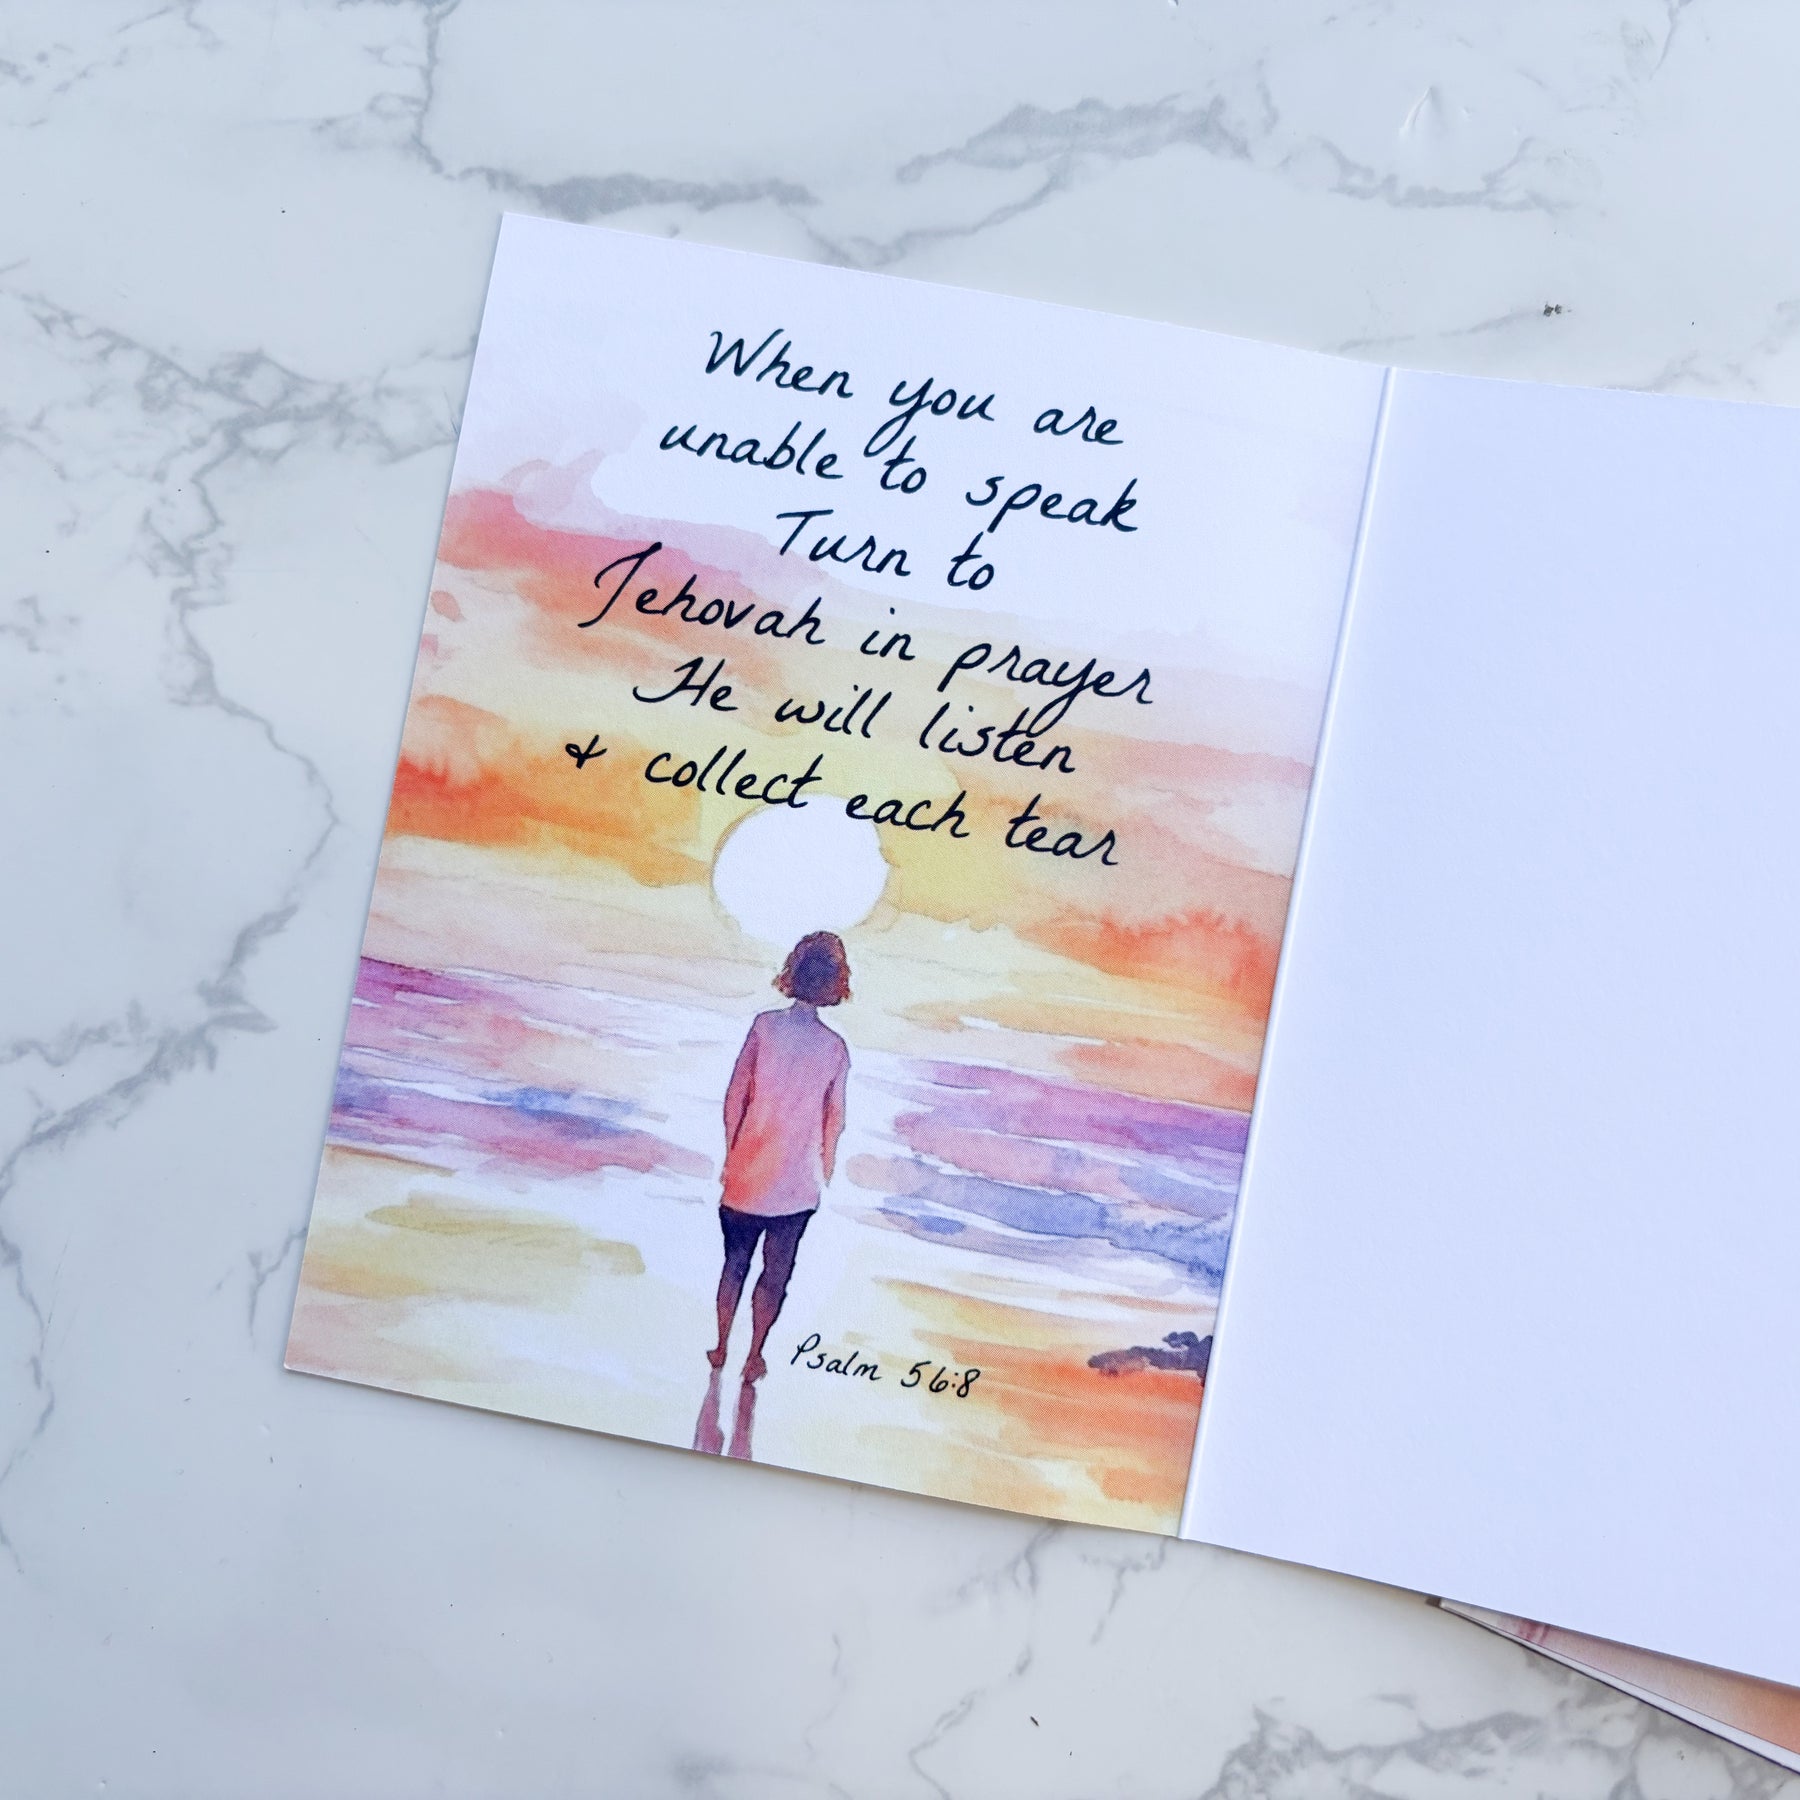 When you are
unable to speak
Turn to
Jehovah in prayer
He will listen
& collect each tear
Psalm 56:8